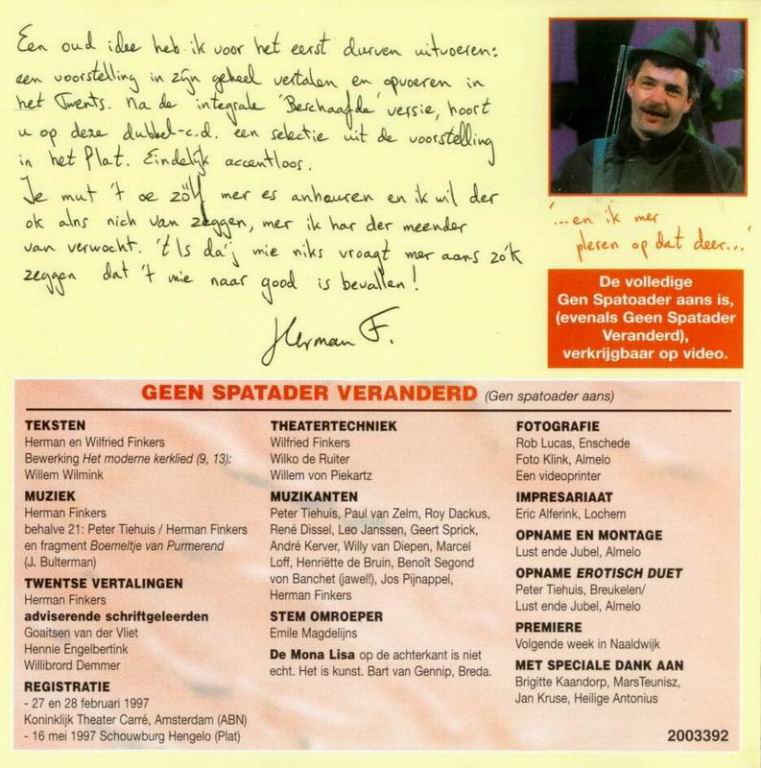 Een oud idee heb ik voor het eerst durven uitvoeren:
een voorstelling in zijn geheel vertalen en opvoeren in
het Twents. Na de integrale 'Beschaafde' versie, hoort
u op deze dubbel-c.d. een selectie uit de voorstelling
in het Plat. Eindelijk accentloos.
Je mut 't oe zölf mer es anheuren en ik wil der
ok alns nich van zeggen, mer ik har der meender
van verwocht. 't Is da'j mie niks vroagt mer aans zo'k
zeggen dat 't mie naar good is bevallen!
Herman F.
'...en ik mer
pleren op dat deer...'
De volledige
Gen Spatoader aans is,
(evenals Geen Spatader
Veranderd),
verkrijgbaar op video.
GEEN SPATADER VERANDERD (Gen spatoader aans)
TEKSTEN
Herman en Wilfried Finkers
Bewerking Het moderne kerklied (9, 13):
Willem Wilmink
MUZIEK
Herman Finkers
behalve 21: Peter Tiehuis / Herman Finkers
en fragment Boemeltje van Purmerend
(J. Bulterman)
TWENTSE VERTALINGEN
Herman Finkers
adviserende schriftgeleerden
Goaitsen van der Vliet
Hennie Engelbertink
Willibrord Demmer
REGISTRATIE
- 27 en 28 februari 1997
Koninklijk Theater Carré, Amsterdam (ABN)
- 16 mei 1997 Schouwburg Hengelo (Plat)
THEATERTECHNIEK
Wilfried Finkers
Wilko de Ruiter
Willem von Piekartz
MUZIKANTEN
Peter Tiehuis, Paul van Zelm, Roy Dackus,
René Dissel, Leo Janssen, Geert Sprick,
André Kerver, Willy van Diepen, Marcel
Loff, Henriëtte de Bruin, Benoît Segond
von Banchet (jawel!), Jos Pijnappel,
Herman Finkers
STEM OMROEPER
Emile Magdelijns
De Mona Lisa op de achterkant is niet
echt. Het is kunst. Bart van Gennip, Breda.
FOTOGRAFIE
Rob Lucas, Enschede
Foto Klink, Almelo
Een videoprinter
IMPRESARIAAT
Eric Alferink, Lochem
OPNAME EN MONTAGE
Lust ende Jubel, Almelo
OPNAME EROTISCH DUET
Peter Tiehuis, Breukelen/
Lust ende Jubel, Almelo
PREMIERE
Volgende week in Naaldwijk
MET SPECIALE DANK AAN
Brigitte Kaandorp, MarsTeunisz,
Jan Kruse, Heilige Antonius
2003392